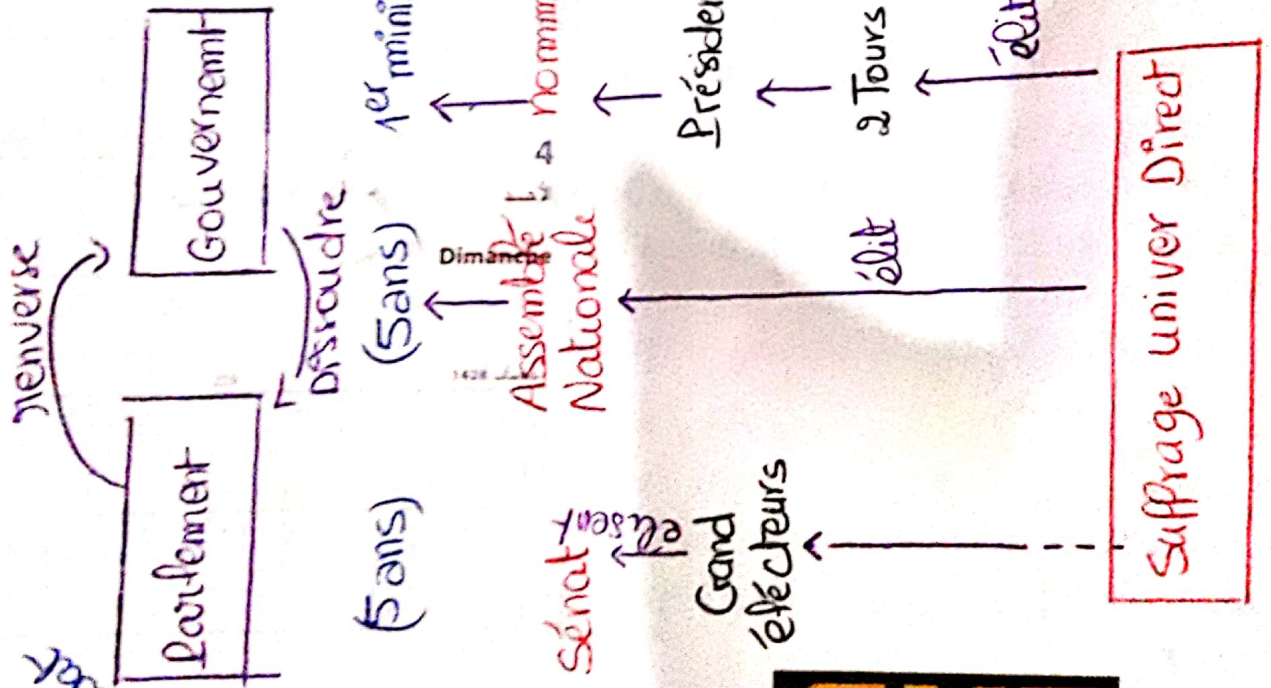 renverse
Parlement
Gouvernemnt
Dissoudre
(5ans)
(5ans)
1er mini
Sénat
Assemblé
Nationale
nomm
Dimanche
4
1428
élisent
Grand
élécteurs
élit
Présiden
2 Tours
élit
Suffrage univer Direct